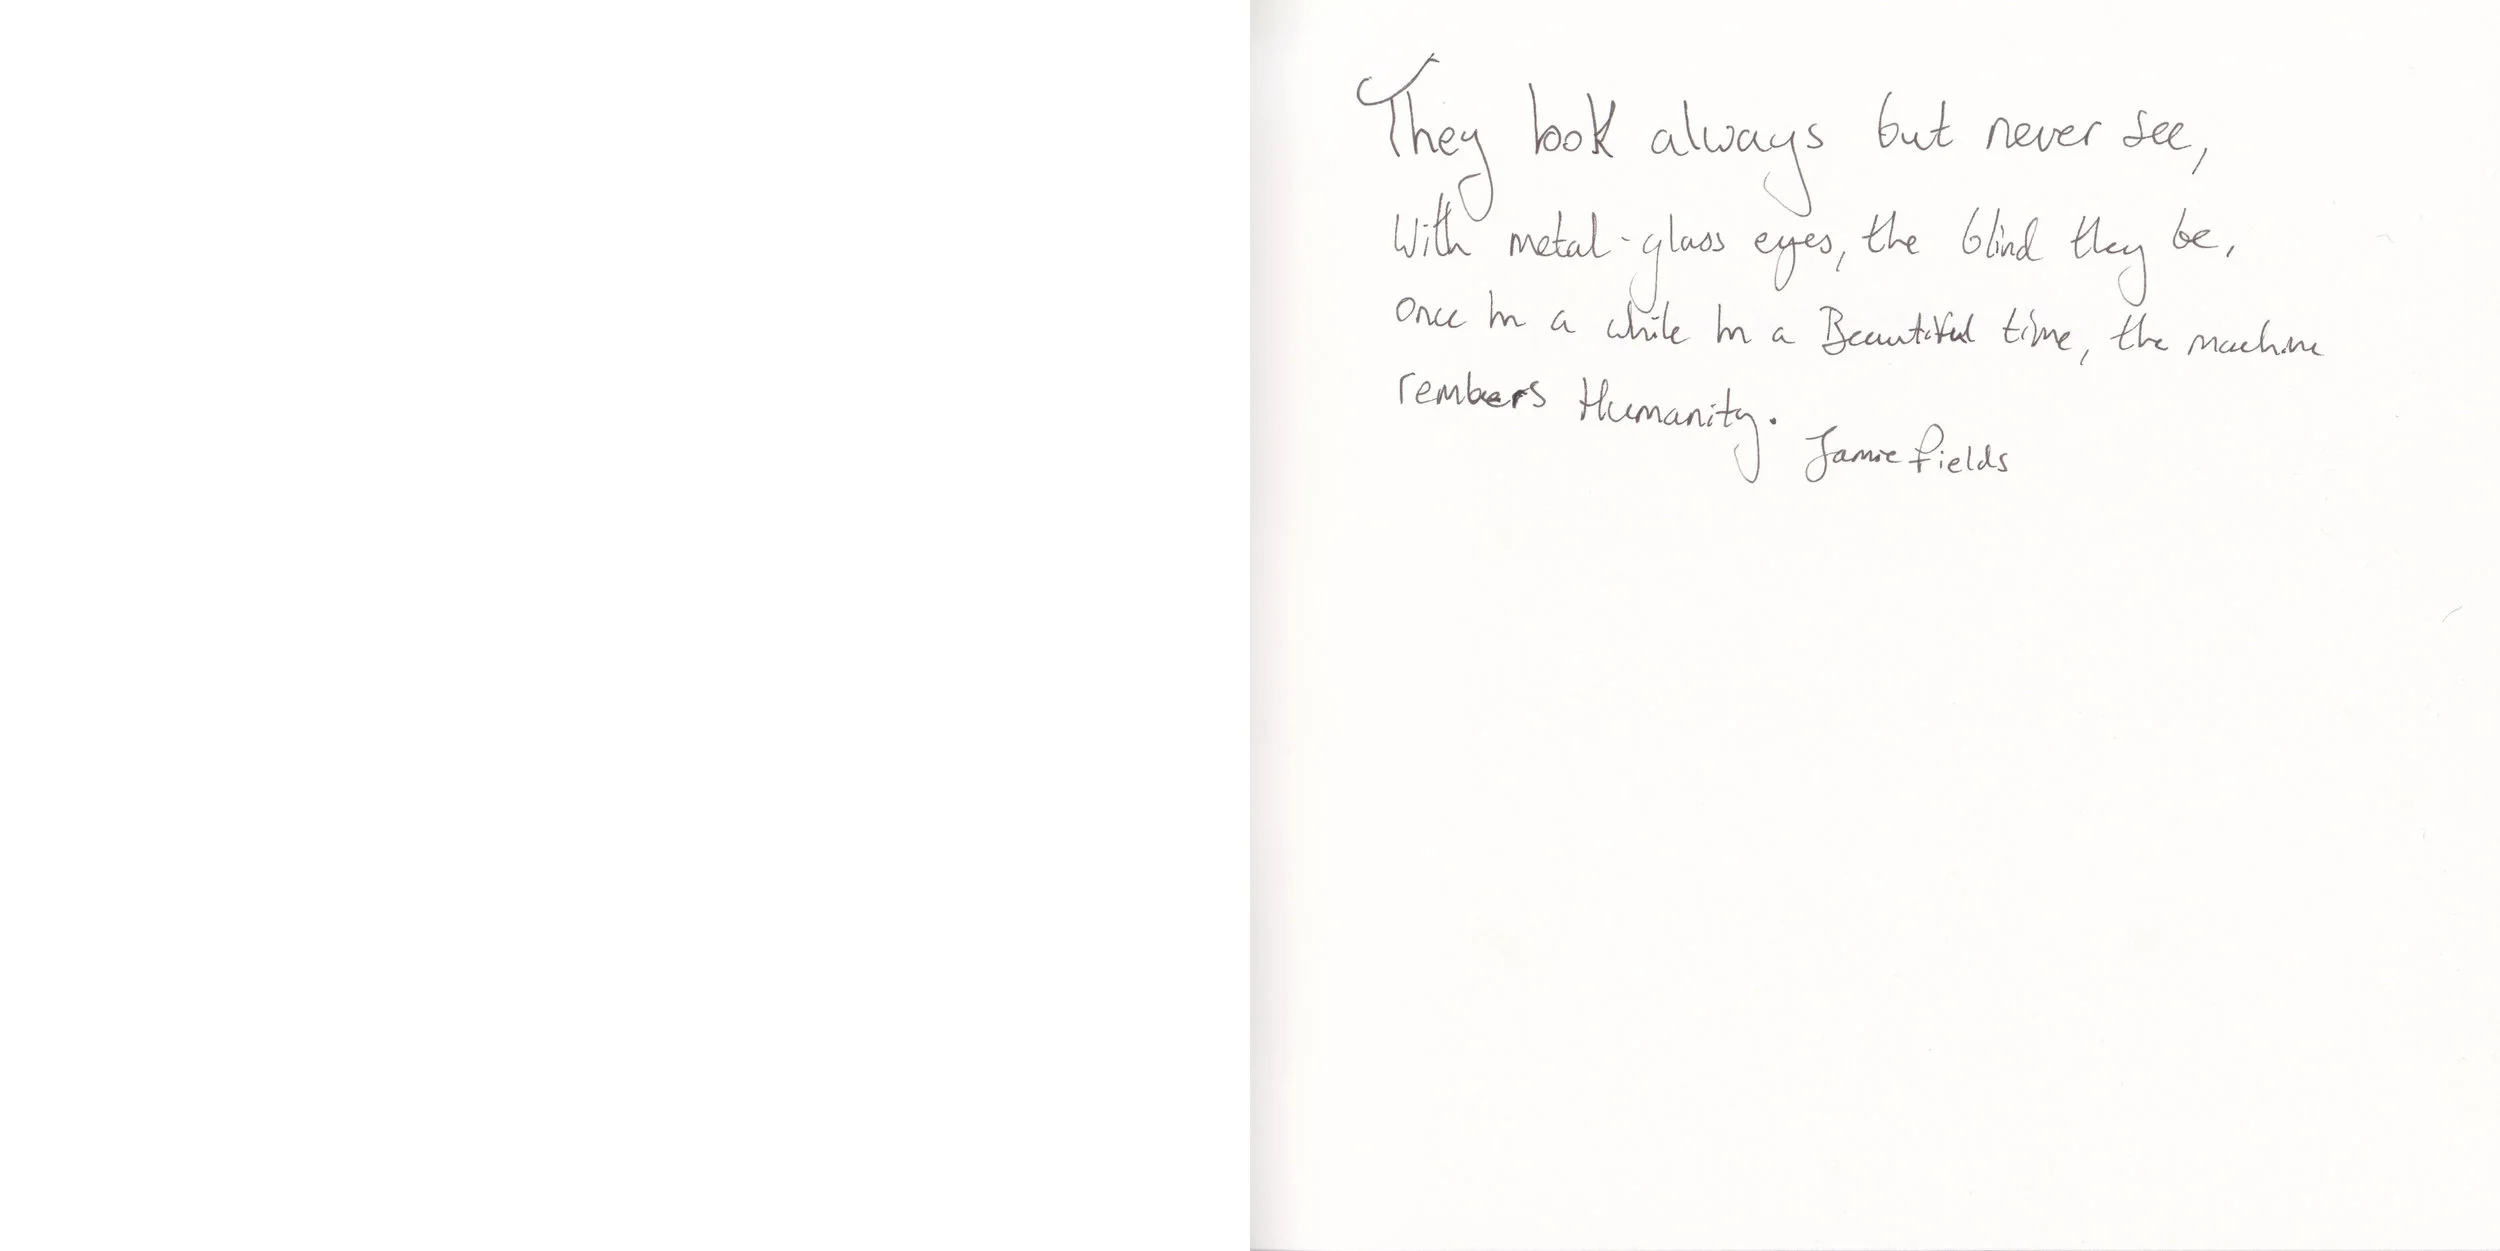 They look always but never see,
With metal-glass eyes, the blind they be,
Once in a while in a Beautiful time, the machine
rembers Humanity.
Jamie Fields